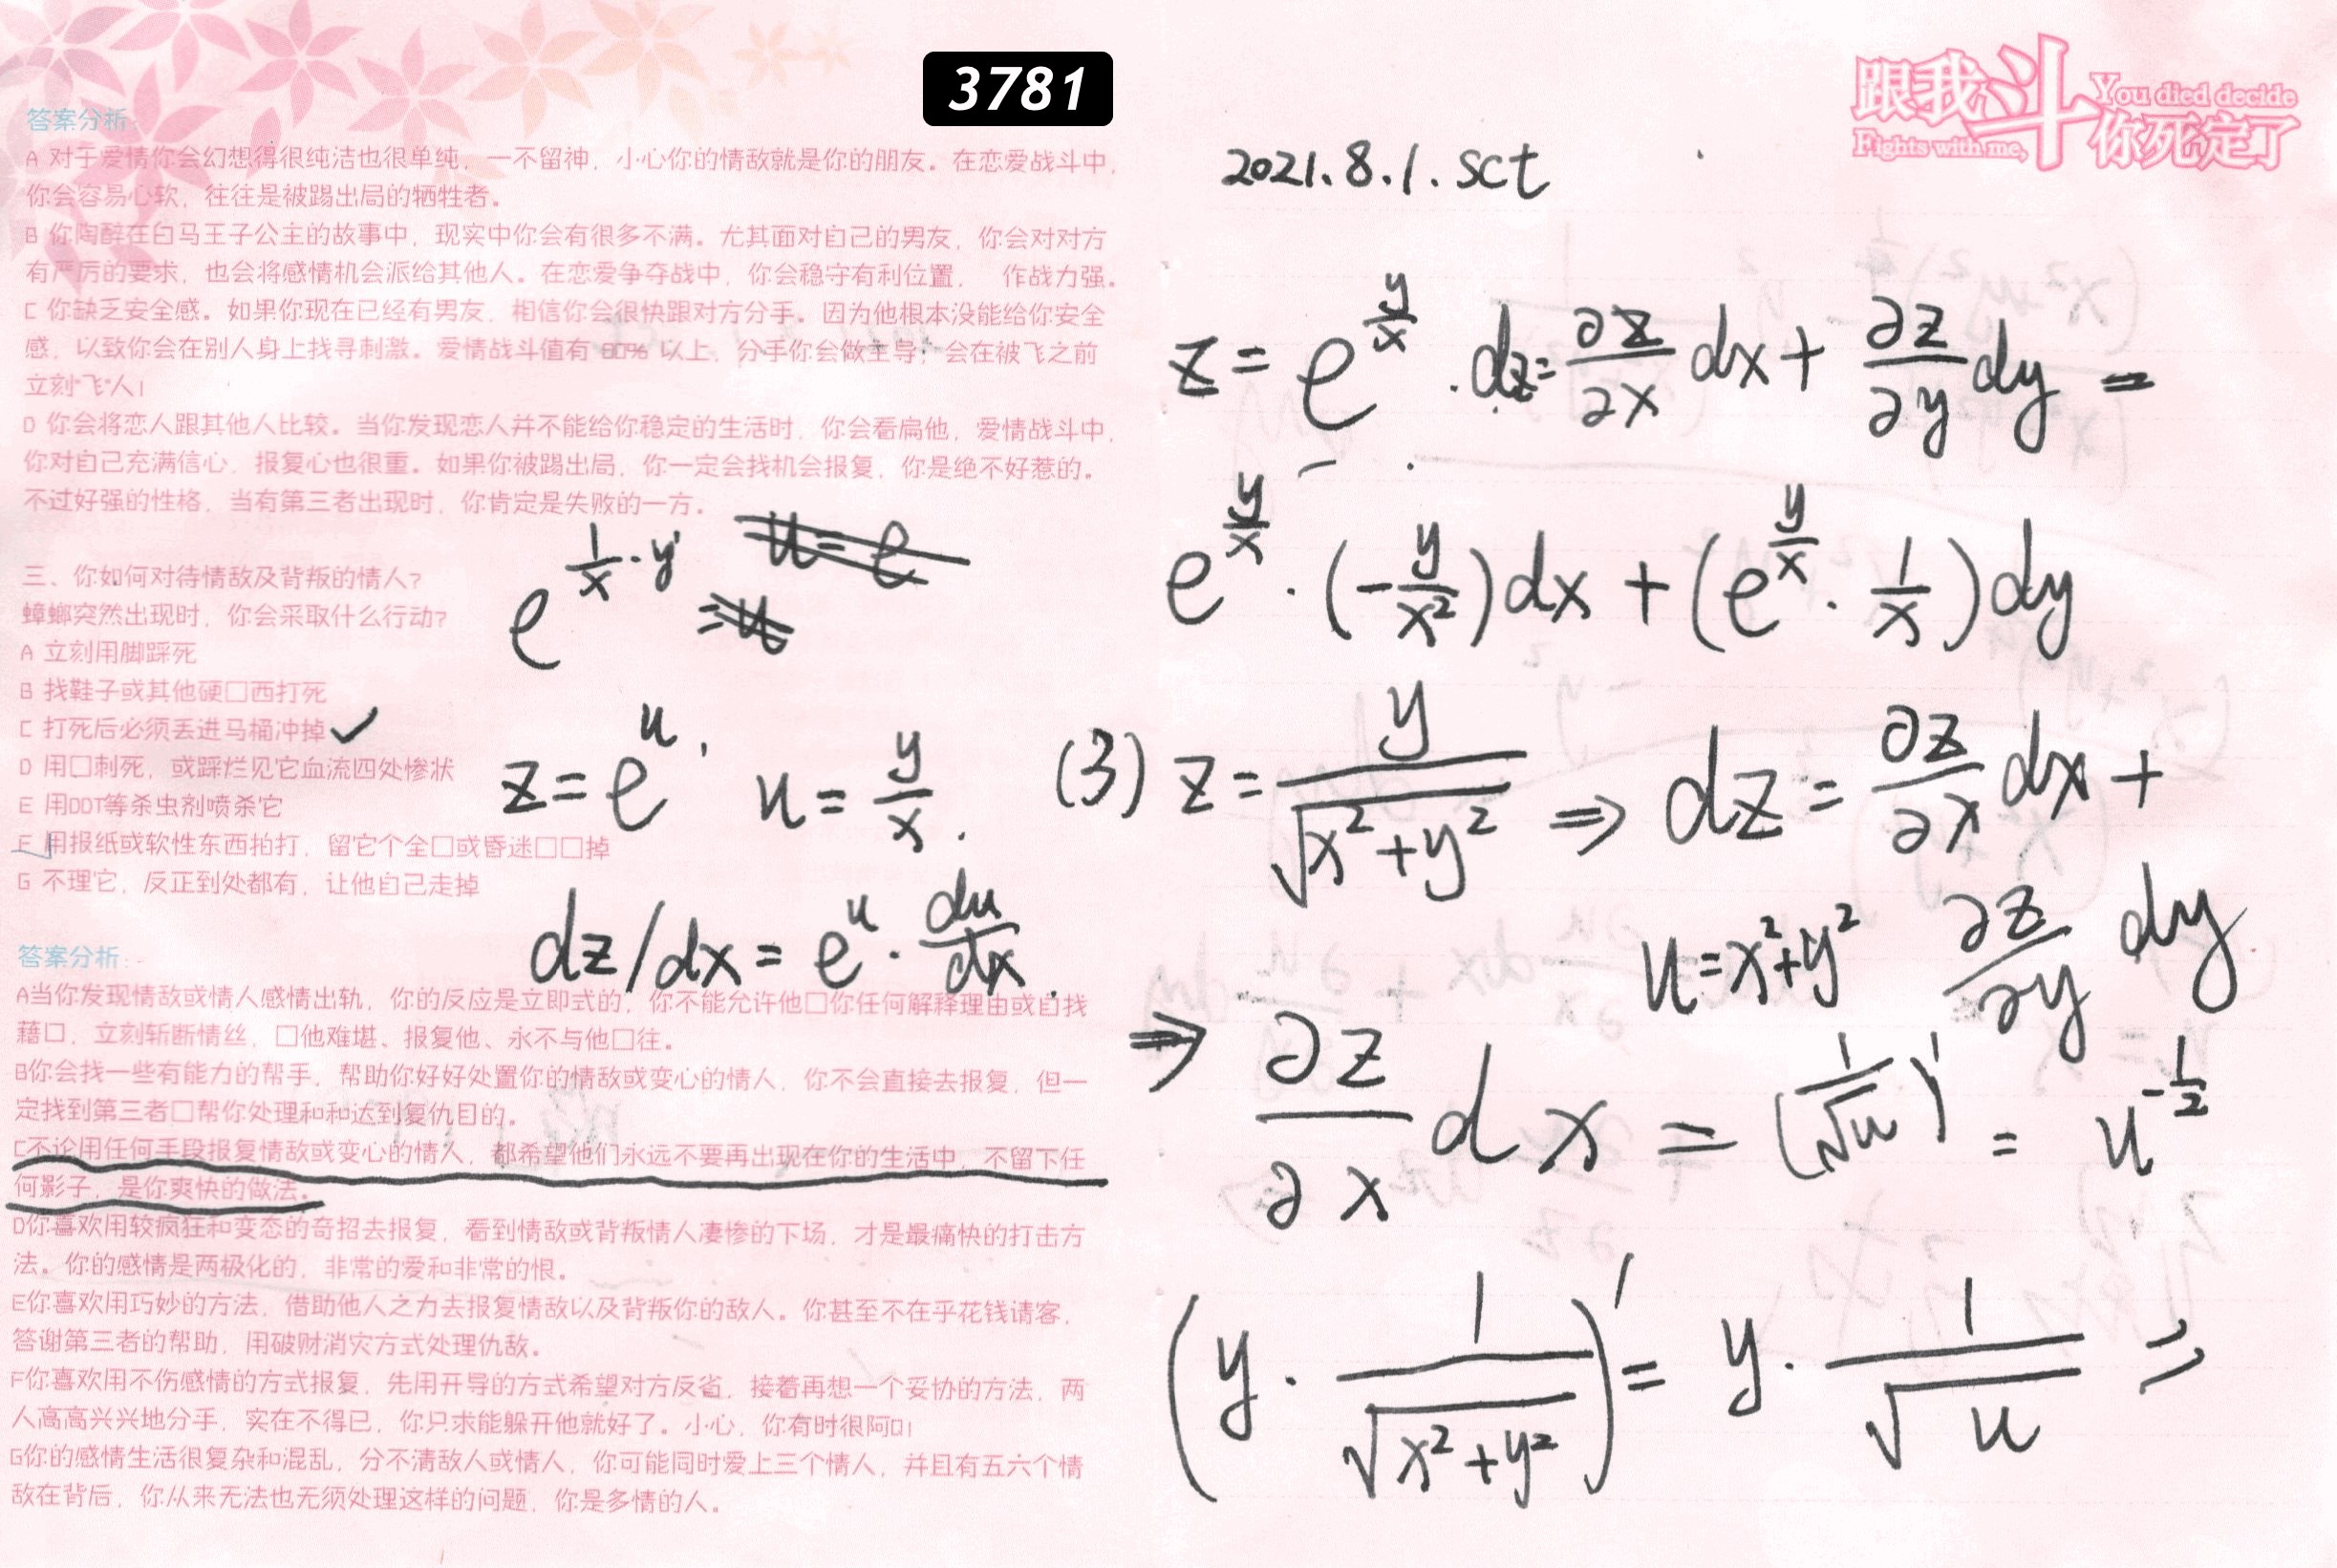 3781
跟我斗你死定了
You died decide
Fights with me,
答案分析
A 对于爱情你会幻想得很纯洁也很单纯，一不留神，小心你的情敌就是你的朋友。在恋爱战斗中，
你会容易心软，往往是被踢出局的牺牲者。
B 你陶醉在白马王子公主的故事中，现实中你会有很多不满。尤其面对自己的男友，你会对对方
有严厉的要求，也会将感情机会派给其他人。在恋爱争夺战中，你会稳守有利位置， 作战力强。
C 你缺乏安全感。如果你现在已经有男友，相信你会很快跟对方分手。因为他根本没能给你安全
感，以致你会在别人身上找寻刺激。爱情战斗值有 80% 以上，分手你会做主导，会在被飞之前
立刻“飞”人！
D 你会将恋人跟其他人比较。当你发现恋人并不能给你稳定的生活时，你会看扁他，爱情战斗中，
你对自己充满信心，报复心也很重。如果你被踢出局，你一定会找机会报复，你是绝不好惹的。
不过好强的性格，当有第三者出现时，你肯定是失败的一方。
三、你如何对待情敌及背叛的情人？
蟑螂突然出现时，你会采取什么行动？
A 立刻用脚踩死
B 找鞋子或其他硬□西打死
C 打死后必须丢进马桶冲掉 ✓
D 用□刺死，或踩烂见它血流四处惨状
E 用DDT等杀虫剂喷杀它
F 用报纸或软性东西拍打，留它个全□或昏迷□□掉
G 不理它，反正到处都有，让他自己走掉
e^{1/x · y}
z = e^u , u = y/x .
dz/dx = e^u · du/dx .
答案分析
A当你发现情敌或情人感情出轨，你的反应是立即式的，你不能允许他□你任何解释理由或自找
藉口，立刻斩断情丝，□他难堪、报复他、永不与他□往。
B你会找一些有能力的帮手，帮助你好好处置你的情敌或变心的情人，你不会直接去报复，但一
定找到第三者□帮你处理和和达到复仇目的。
C不论用任何手段报复情敌或变心的情人，都希望他们永远不要再出现在你的生活中，不留下任
何影子，是你爽快的做法。
D你喜欢用较疯狂和变态的奇招去报复，看到情敌或背叛情人凄惨的下场，才是最痛快的打击方
法。你的感情是两极化的，非常的爱和非常的恨。
E你喜欢用巧妙的方法，借助他人之力去报复情敌以及背叛你的敌人。你甚至不在乎花钱请客，
答谢第三者的帮助，用破财消灾方式处理仇敌。
F你喜欢用不伤感情的方式报复，先用开导的方式希望对方反省，接着再想一个妥协的方法，两
人高高兴兴地分手，实在不得已，你只求能躲开他就好了。小心，你有时很阿□！
G你的感情生活很复杂和混乱，分不清敌人或情人，你可能同时爱上三个情人，并且有五六个情
敌在背后，你从来无法也无须处理这样的问题，你是多情的人。
2021.8.1.sct
z = e^{y/x} . dz = ∂z/∂x dx + ∂z/∂y dy =
e^{y/x} · (-y/x²) dx + (e^{y/x} · 1/x) dy
(3) z = y/√(x²+y²) ⇒ dz = ∂z/∂x dx +
u = x²+y² ∂z/∂y dy
⇒ ∂z/∂x dx = (1/√u)' = u^{-1/2}
(y · 1/√(x²+y²))' = y · 1/√u ⇒